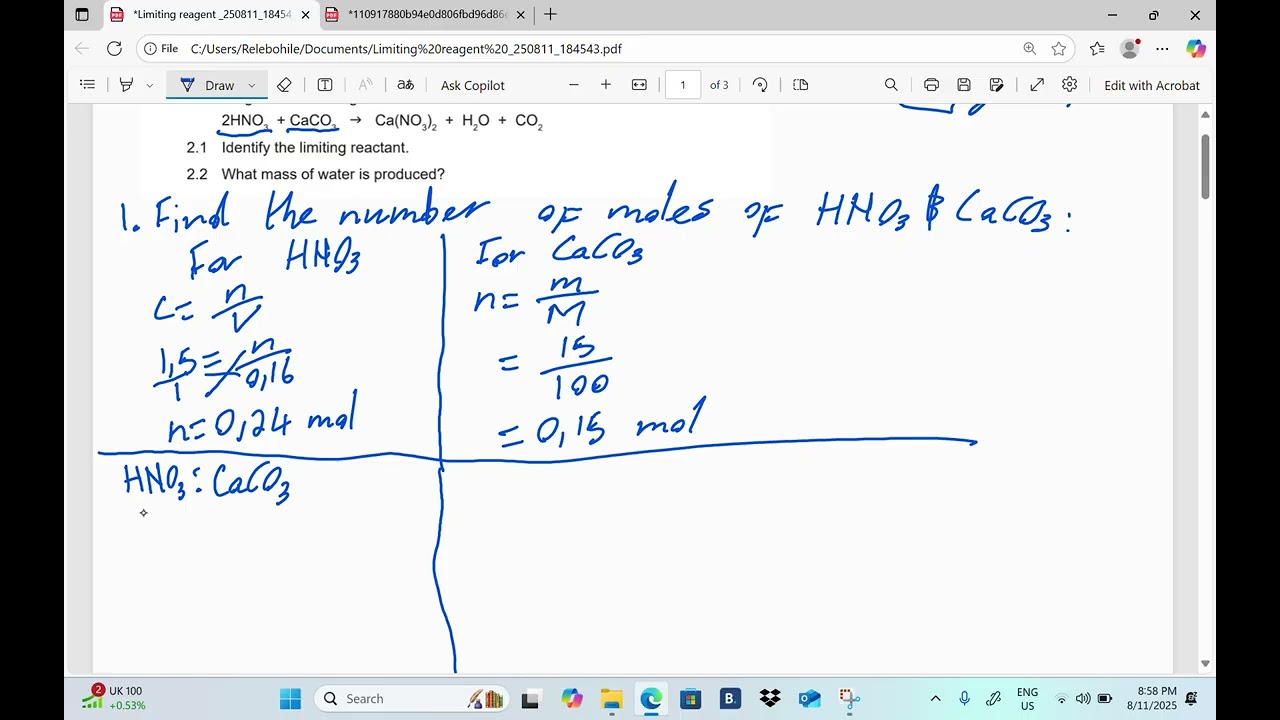 *Limiting reagent _250811_18454
*110917880b94e0d806fbd96d86
File C:/Users/Relebohile/Documents/Limiting%20reagent%20_250811_184543.pdf
Draw
Ask Copilot
1 of 3
Edit with Acrobat
2HNO3 + CaCO3 → Ca(NO3)2 + H2O + CO2
2.1 Identify the limiting reactant.
2.2 What mass of water is produced?
1. Find the number of moles of HNO3 & CaCO3:
For HNO3
c = n/V
1,5/1 = n/0,16
n = 0,24 mol
For CaCO3
n = m/M
= 15/100
= 0,15 mol
HNO3 : CaCO3
2
UK 100
+0.53%
Search
B.
ENG
US
8:58 PM
8/11/2025